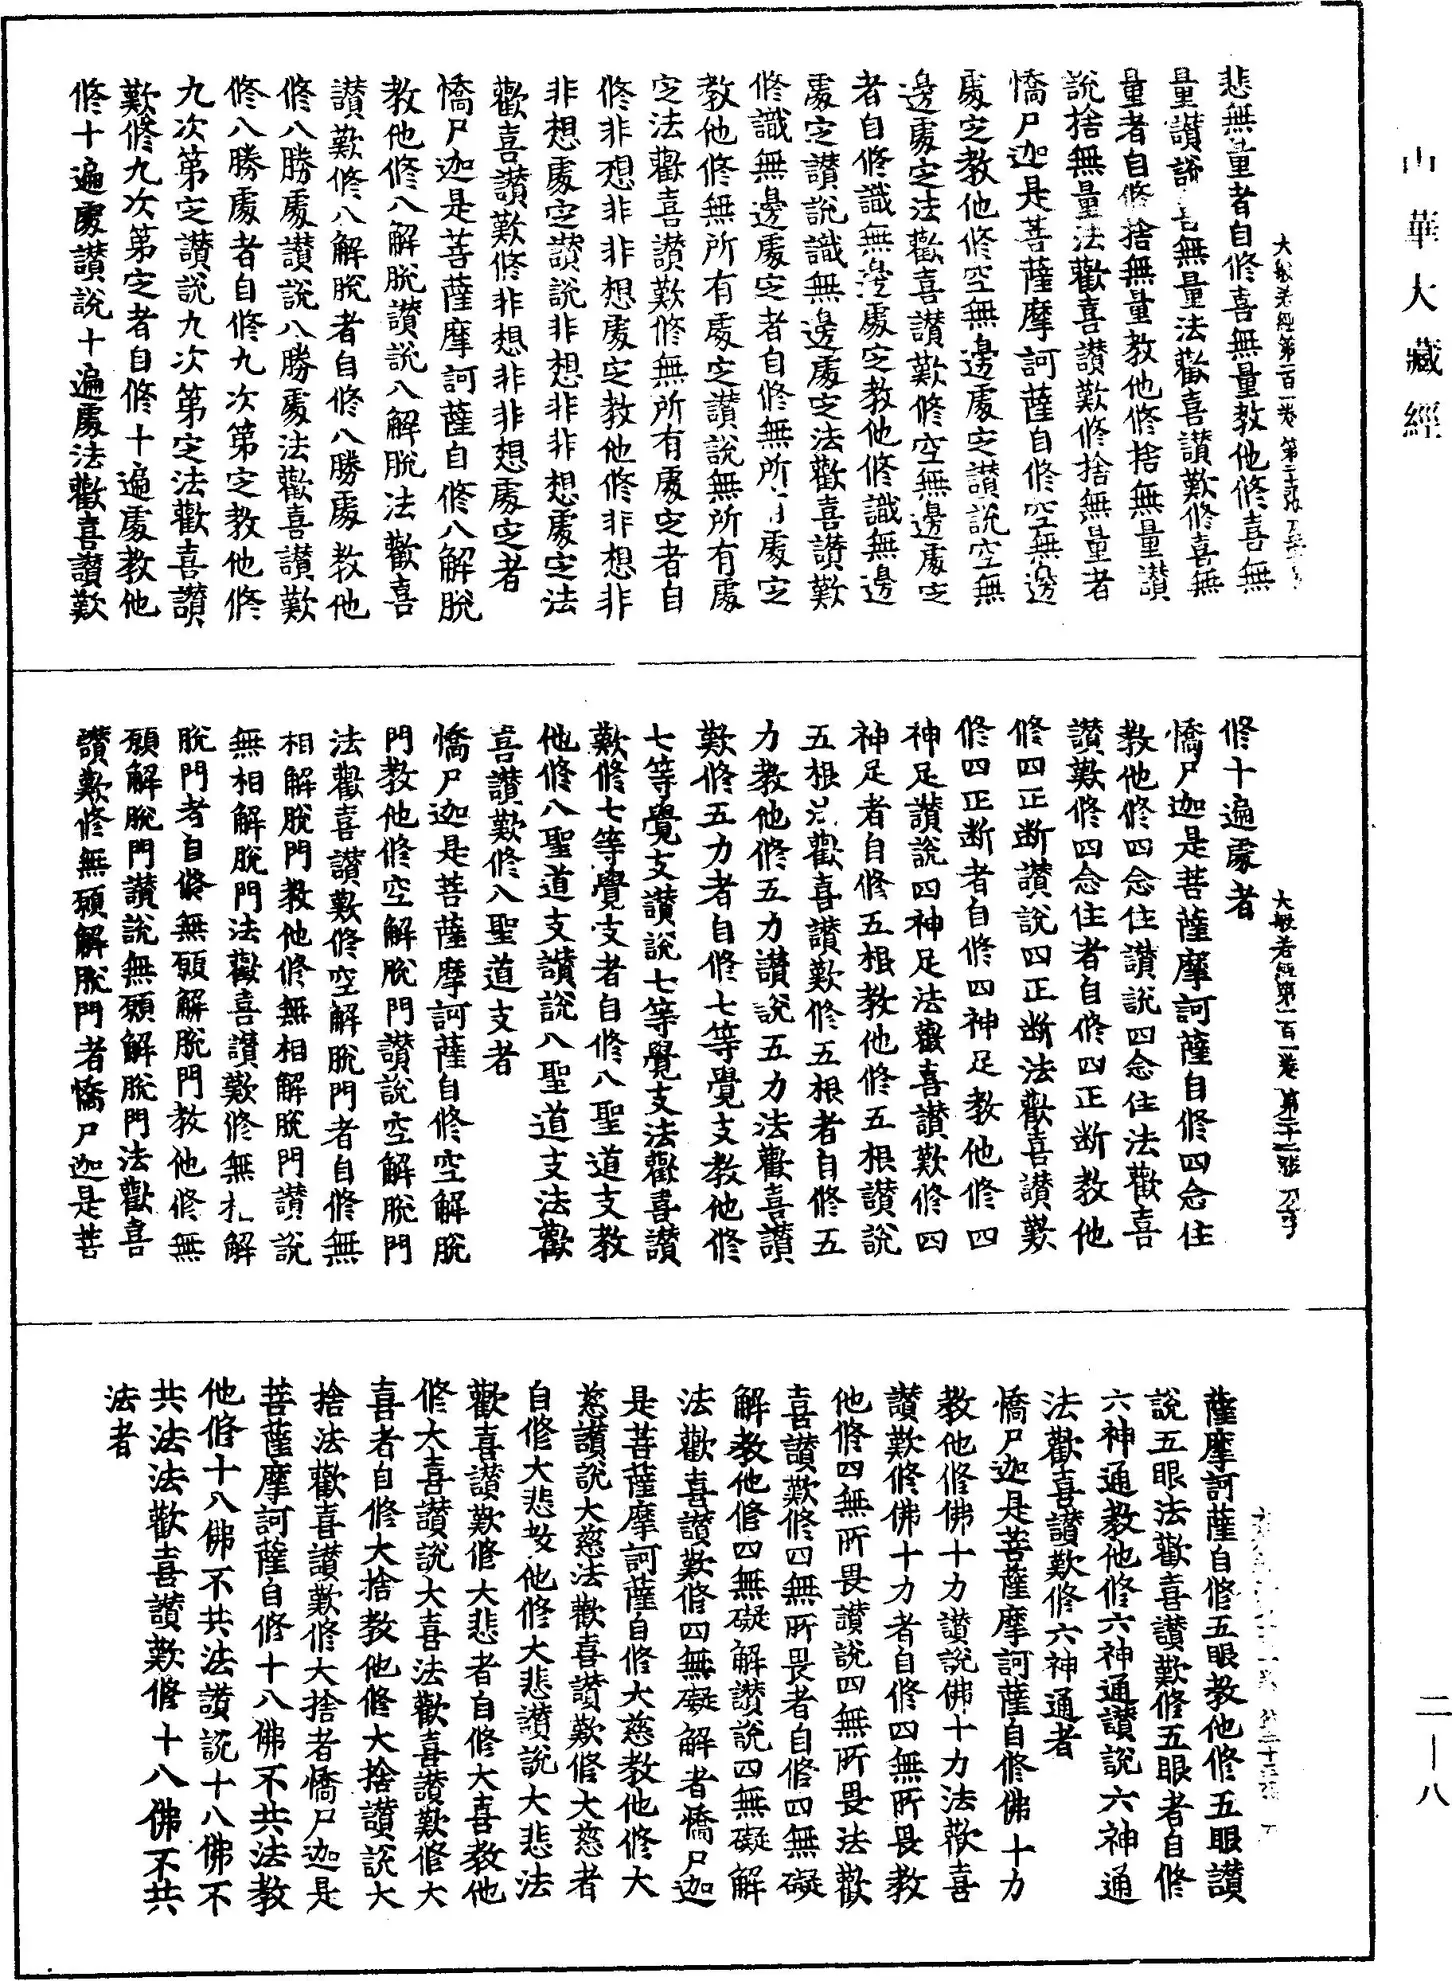 中華大藏經
二—八
大般若經第一百一卷 第二十一張
悲無量者自修喜無量教他修喜無
量讚說喜無量法歡喜讚歎修喜無
量者自修捨無量教他修捨無量讚
說捨無量法歡喜讚歎修捨無量者
憍尸迦是菩薩摩訶薩自修空無邊
處定教他修空無邊處定讚說空無
邊處定法歡喜讚歎修空無邊處定
者自修識無邊處定教他修識無邊
處定讚說識無邊處定法歡喜讚歎
修識無邊處定者自修無所有處定
教他修無所有處定讚說無所有處
定法歡喜讚歎修無所有處定者自
修非想非非想處定教他修非想非
非想處定讚說非想非非想處定法
歡喜讚歎修非想非非想處定者
憍尸迦是菩薩摩訶薩自修八解脫
教他修八解脫讚說八解脫法歡喜
讚歎修八解脫者自修八勝處教他
修八勝處讚說八勝處法歡喜讚歎
修八勝處者自修九次第定教他修
九次第定讚說九次第定法歡喜讚
歎修九次第定者自修十遍處教他
修十遍處讚說十遍處法歡喜讚歎
大般若經第一百一卷 第二十二張
修十遍處者
憍尸迦是菩薩摩訶薩自修四念住
教他修四念住讚說四念住法歡喜
讚歎修四念住者自修四正斷教他
修四正斷讚說四正斷法歡喜讚歎
修四正斷者自修四神足教他修四
神足讚說四神足法歡喜讚歎修四
神足者自修五根教他修五根讚說
五根法歡喜讚歎修五根者自修五
力教他修五力讚說五力法歡喜讚
歎修五力者自修七等覺支教他修
七等覺支讚說七等覺支法歡喜讚
歎修七等覺支者自修八聖道支教
他修八聖道支讚說八聖道支法歡
喜讚歎修八聖道支者
憍尸迦是菩薩摩訶薩自修空解脫
門教他修空解脫門讚說空解脫門
法歡喜讚歎修空解脫門者自修無
相解脫門教他修無相解脫門讚說
無相解脫門法歡喜讚歎修無相解
脫門者自修無願解脫門教他修無
願解脫門讚說無願解脫門法歡喜
讚歎修無願解脫門者憍尸迦是菩
薩摩訶薩自修五眼教他修五眼讚
說五眼法歡喜讚歎修五眼者自修
六神通教他修六神通讚說六神通
法歡喜讚歎修六神通者
憍尸迦是菩薩摩訶薩自修佛十力
教他修佛十力讚說佛十力法歡喜
讚歎修佛十力者自修四無所畏教
他修四無所畏讚說四無所畏法歡
喜讚歎修四無所畏者自修四無礙
解教他修四無礙解讚說四無礙解
法歡喜讚歎修四無礙解者憍尸迦
是菩薩摩訶薩自修大慈教他修大
慈讚說大慈法歡喜讚歎修大慈者
自修大悲教他修大悲讚說大悲法
歡喜讚歎修大悲者自修大喜教他
修大喜讚說大喜法歡喜讚歎修大
喜者自修大捨教他修大捨讚說大
捨法歡喜讚歎修大捨者憍尸迦是
菩薩摩訶薩自修十八佛不共法教
他修十八佛不共法讚說十八佛不
共法法歡喜讚歎修十八佛不共
法者